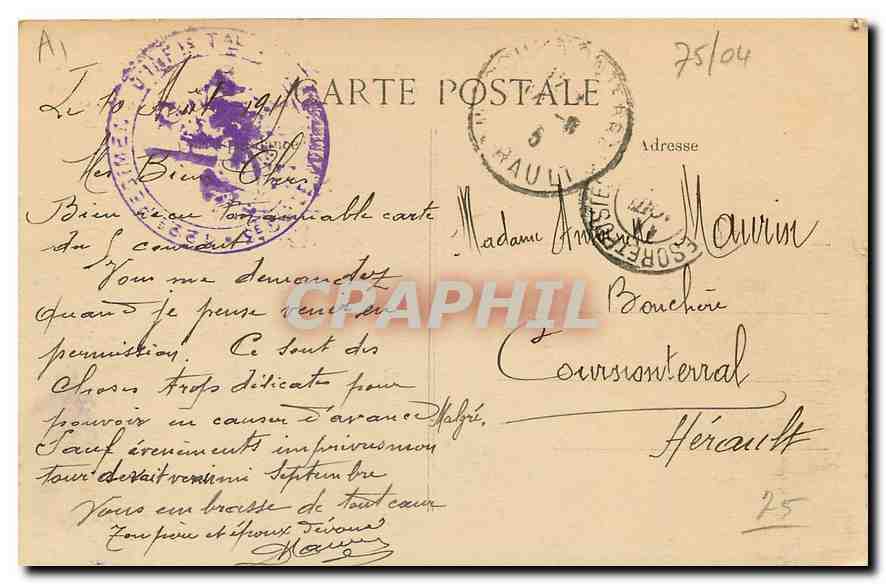 A1
75/04
Le 10 Août 191
CARTE POSTALE
Adresse
Mes Bien Chers
Bien reçu ton aimable carte
du 5 courant
Vous me demandez
quand je pense venir en
permission. Ce sont des
choses trops délicates pour
pouvoir en causer d'avance Malgré,
Sauf évènements imprévus mon
tour devait venir mi Septembre
Vous embrasse de tout cœur
Ton père et époux dévoué
Maurin
Madame Maurin
Bouchère
Cournonterral
Hérault
25
TRESOR ET POSTES
CPAPHIL